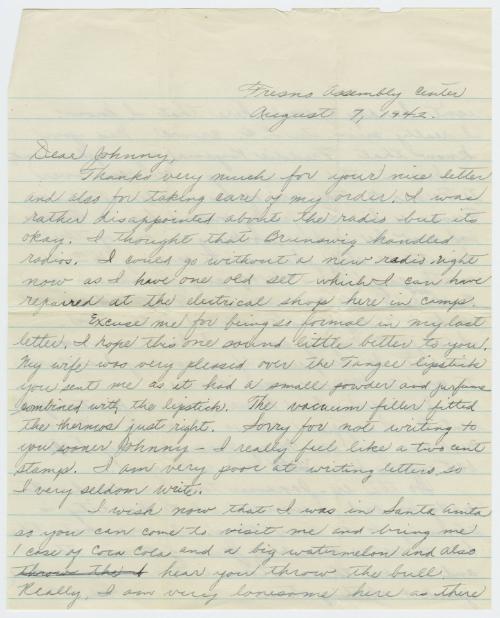 Fresno Assembly Center
August 7, 1942.
Dear Johnny,
Thanks very much for your nice letter
and also for taking care of my order. I was
rather disappointed about the radio but its
okay. I thought that Brunswig handled
radios. I could go without a new radio right
now as I have one old set which I can have
repaired at the electrical shop here in camp.
Excuse me for being so formal in my last
letter. I hope this one sound little better to you.
My wife was very pleased over the Tangee lipstick
you sent me as it had a small powder and perfume
combined with the lipstick. The vacuum filler fitted
the thermos just right. Sorry for not writing to
you sooner Johnny — I really feel like a two cent
stamp. I am very poor at writing letters so
I very seldom write.
I wish now that I was in Santa Anita
so you can come to visit me and bring me
1 case of Coca Cola and a big watermelon and also
throws the hear you throw the bull.
Really, I am very lonesome here as there